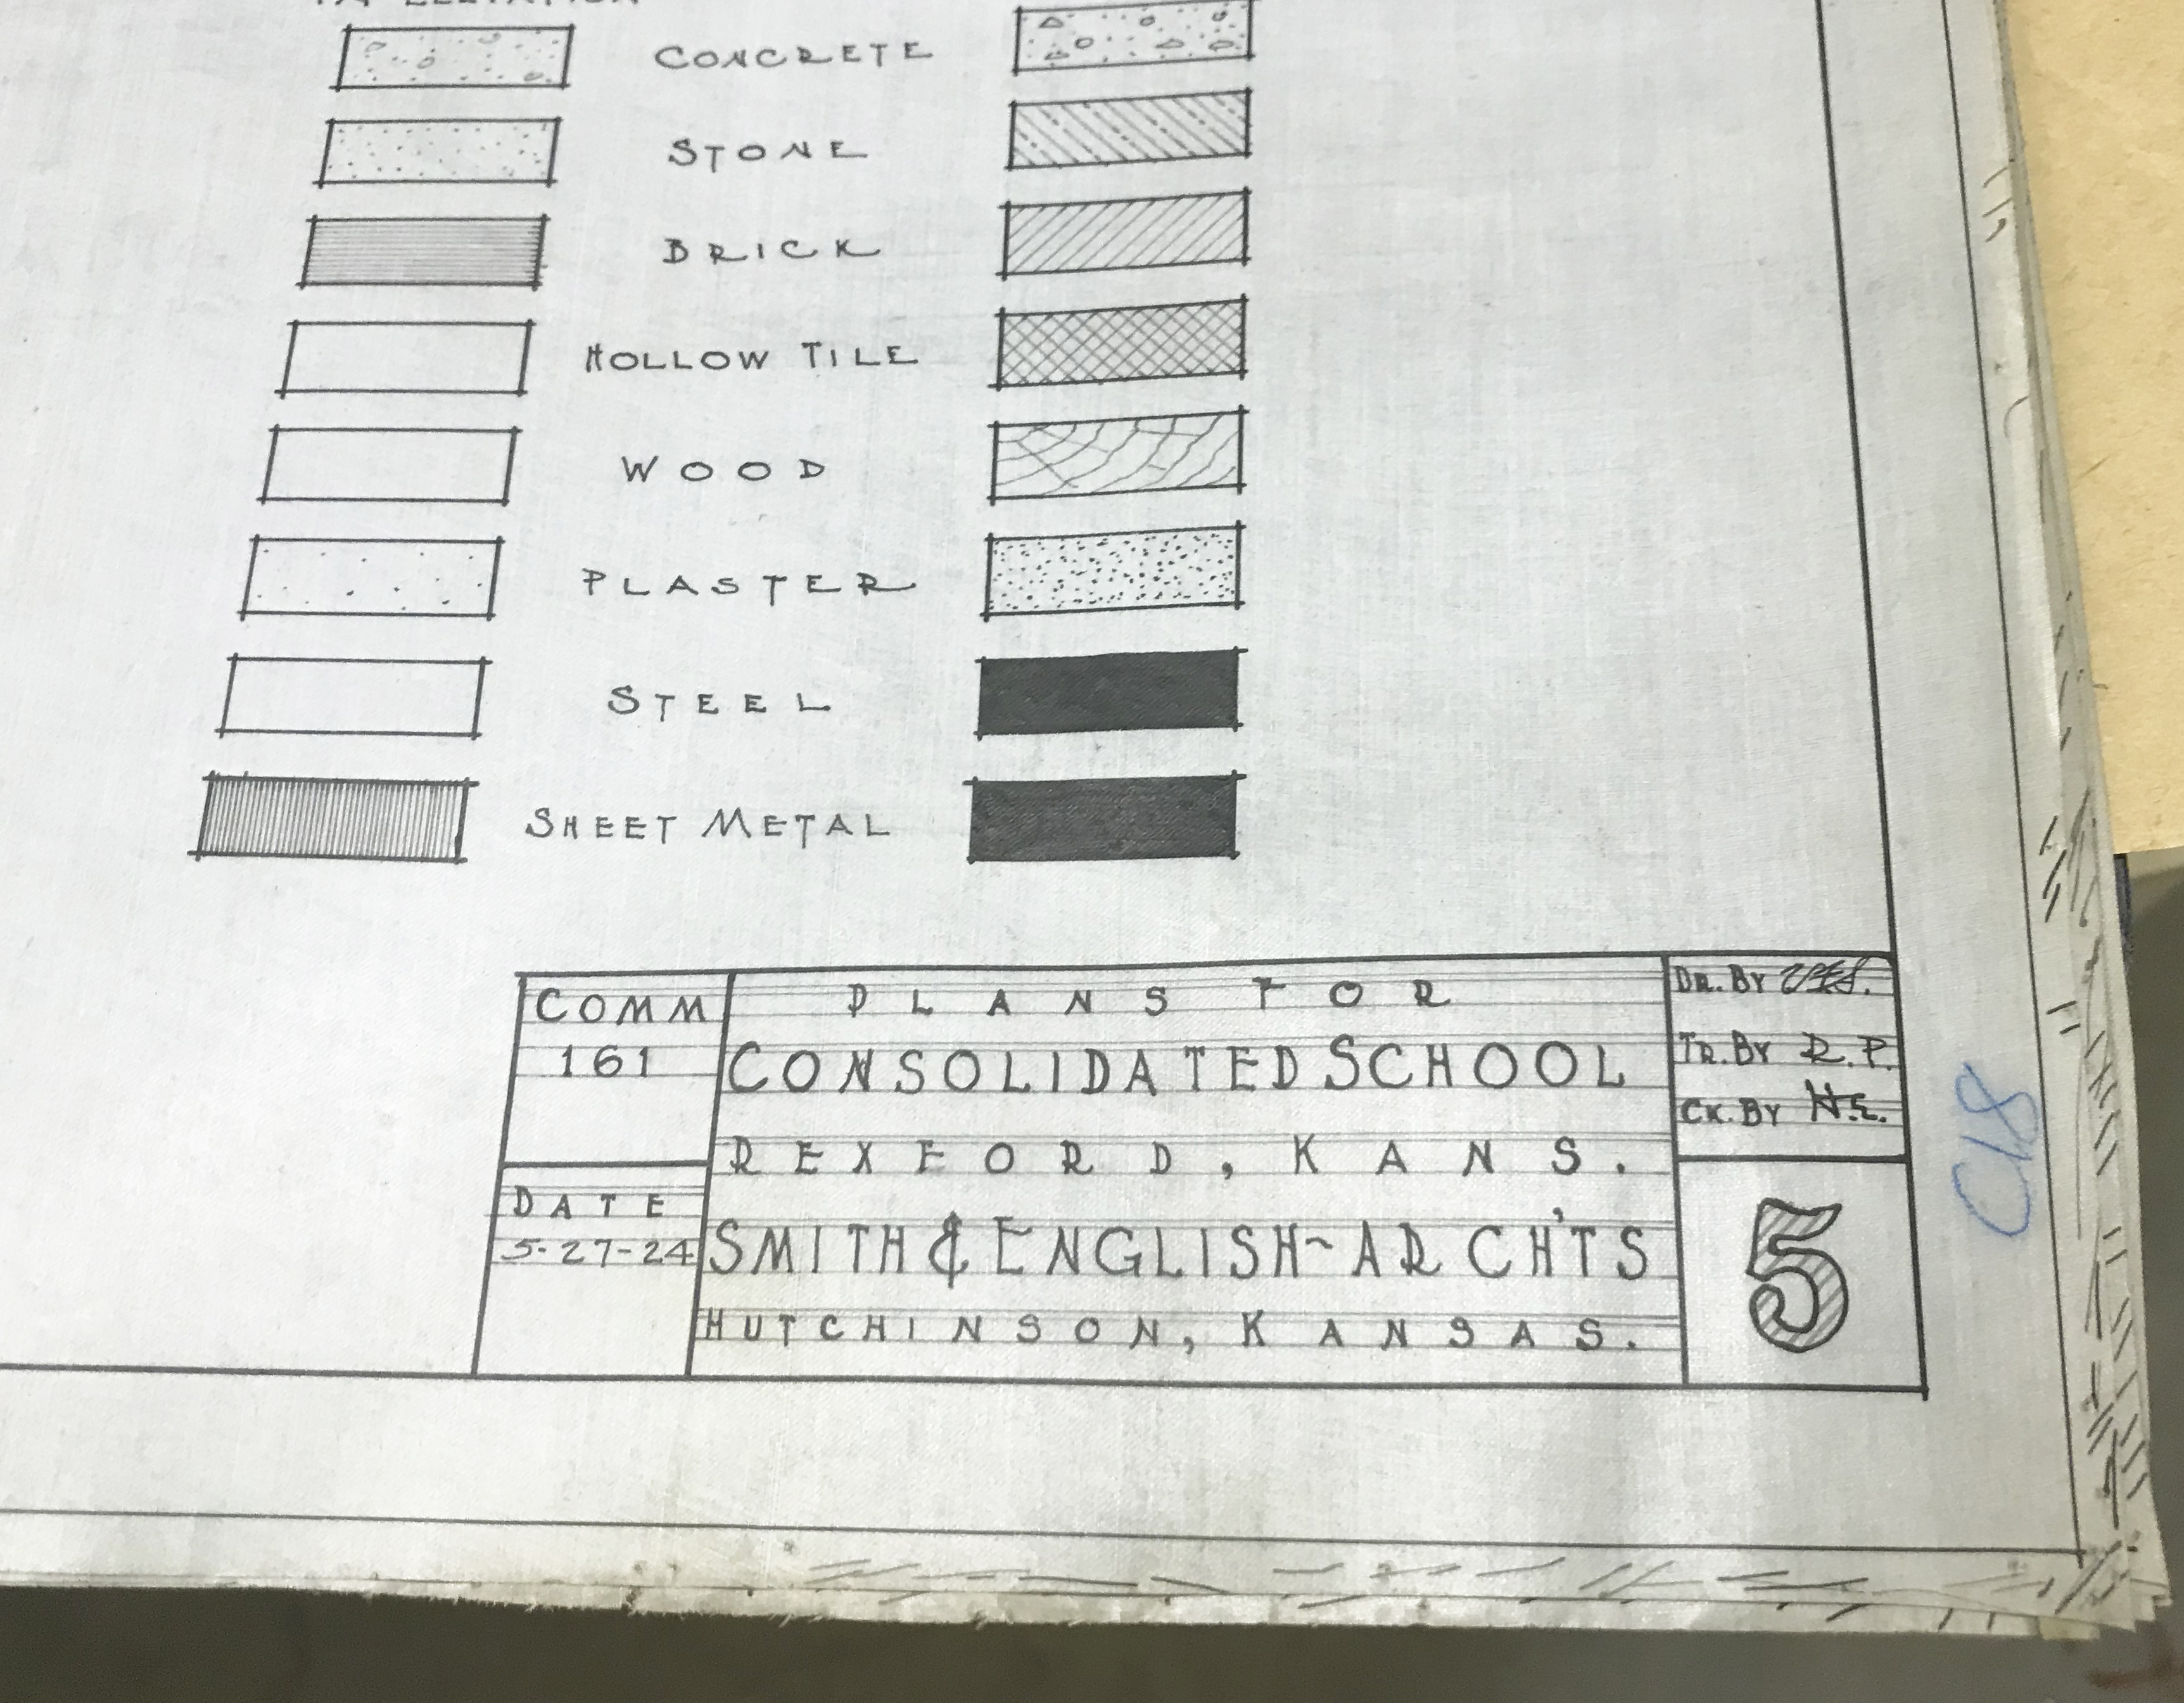 CONCRETE
STONE
BRICK
HOLLOW TILE
WOOD
PLASTER
STEEL
SHEET METAL
COMM
161
DATE
5-27-24
PLANS FOR
CONSOLIDATED SCHOOL
REXFORD, KANS.
SMITH & ENGLISH~ARCH'TS
HUTCHINSON, KANSAS.
DR. BY
TR. BY R.P.
CK. BY H.E.
5
C18